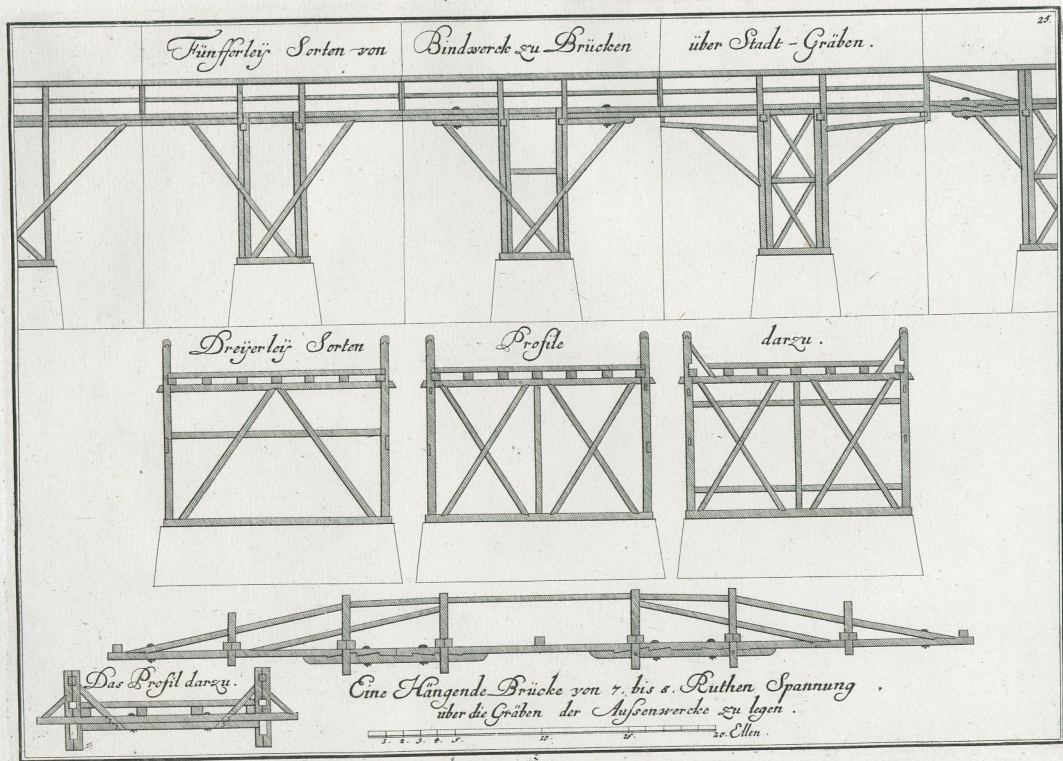 25.
Fünfferleÿ Sorten von Bindwerck zu Brücken über Stadt-Gräben.
Dreÿerleÿ Sorten Profile darzu.
Das Profil darzu.
Eine Hängende Brücke von 7. bis 8. Ruthen Spannung.
über die Gräben der Aussenwercke zu legen.
1. 2. 3. 4. 5. 10. 15. 20. Ellen.